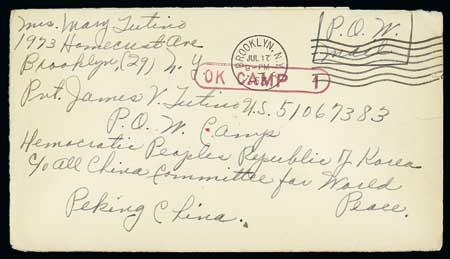 Mrs. Mary Tutino
1973 Homecrest Ave
Brooklyn, (29) N. Y
P.O.W.
Mail
BROOKLYN, N.Y.
JUL 17
PM
OK CAMP 1
Pvt. James V. Tutino U.S. 51067383
P.O.W. Camp
Democratic Peoples Republic of Korea
c/o All China Committee for World
Peace.
Peking China.